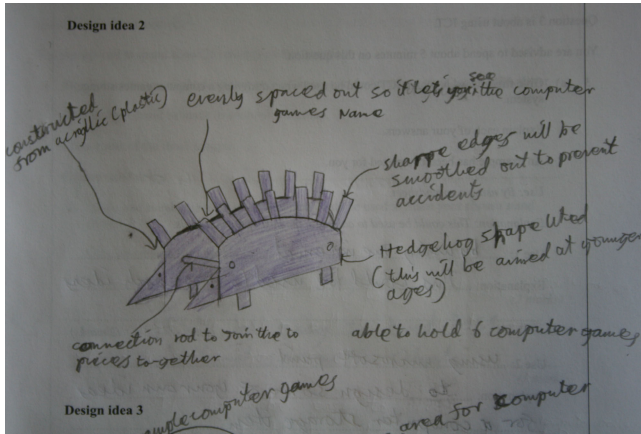 Design idea 2
constructed
from acryllic (plastic)
evenly spaced out so it lets you see the computer
games name
sharpe edges will be
smoothed out to prevent
accidents
Hedgehog shape used
(this will be aimed at younger
ages)
connection rod to join the to
pieces to-gether
able to hold 6 computer games
Design idea 3
computer games
area for computer